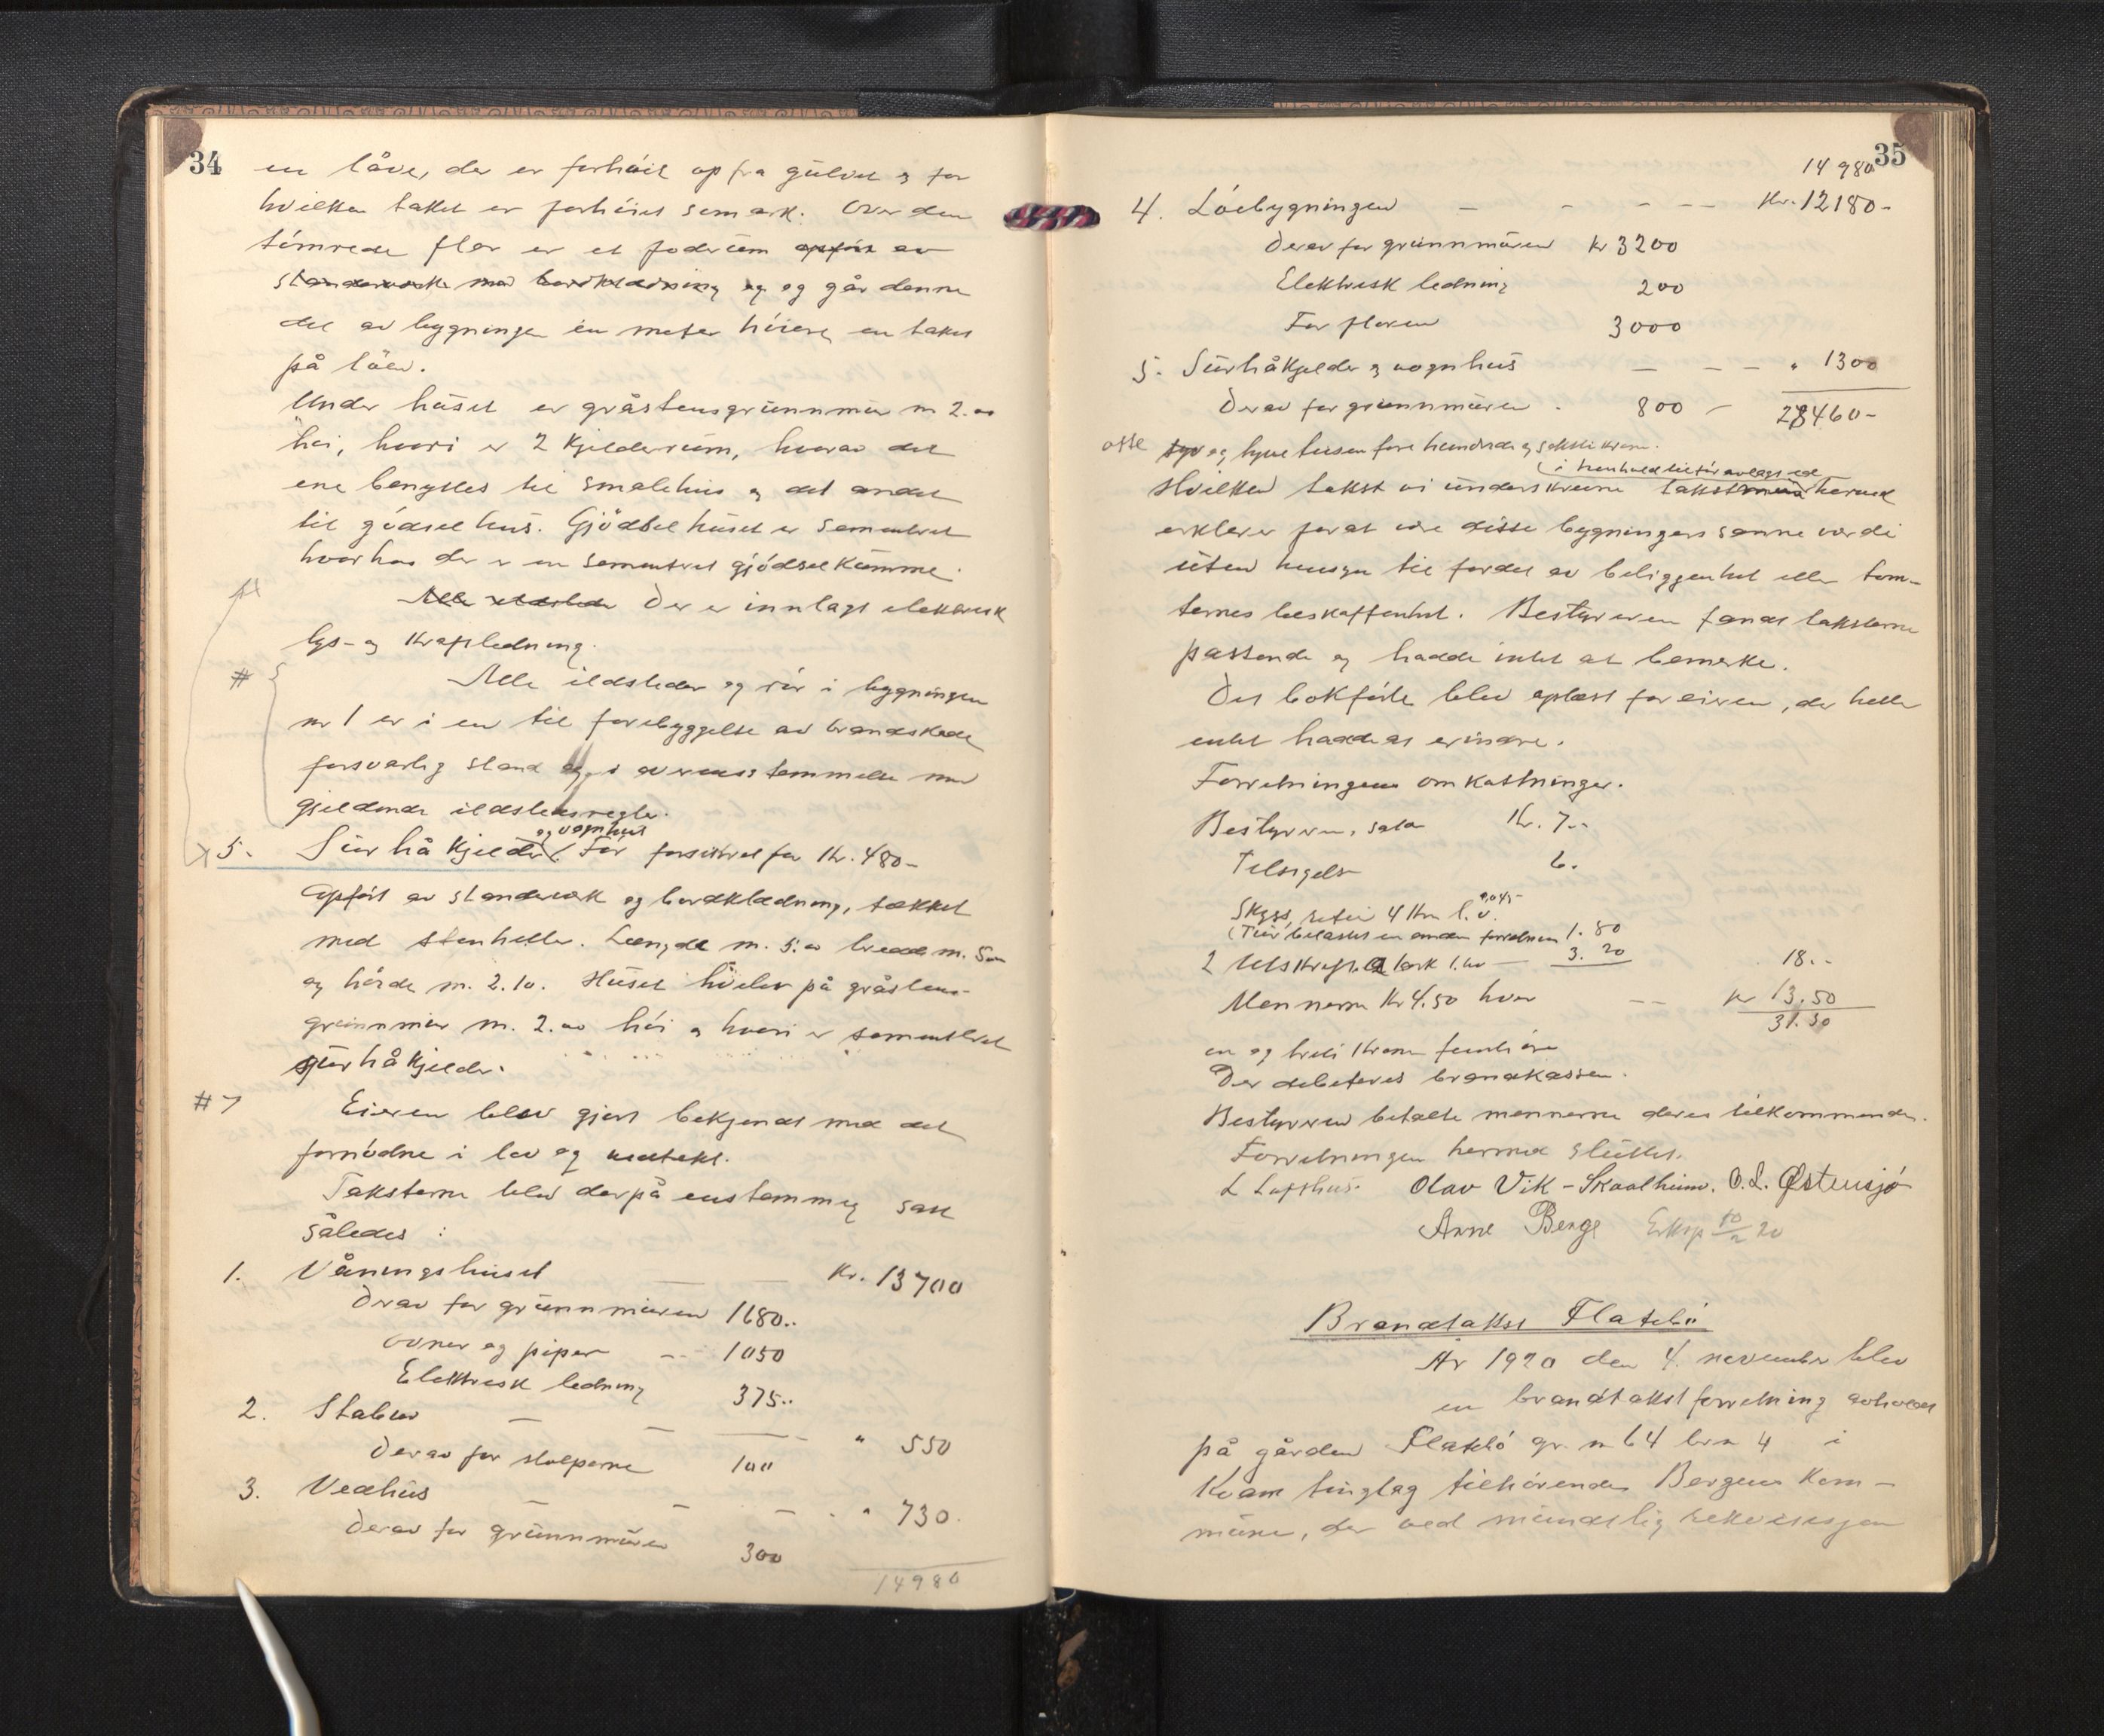 34
en låve, der er forhöiet op fra gulvet og for
hvilken taket er forhöiet som ark. Over den
tömrede flor er et foderum opfört av
standerverk med bordklædning og og går denne
del av bygningen en meter höiere en taket
på löen.
Under huset er gråstensgrunnmur m 2.00
höi, hvori er 2 kjelderrum, hvorav det
ene benyttes til smalehus og det andet
til gödselhus. Gjödselhuset er sementeret
hvorhos der er en sementeret gjödselkumme.
Alle ildsteder Der er innlagt elektrisk
lys- og kraftledning.
# Alle ildsteder og rör i bygningen
nr 1 er i en til forebyggelse av brandskade
forsvarlig stand og i overensstemmelse med
gjeldende ildstedsregler.
og vognhus
5. Surhåkjelder. Før forsikret for Kr. 480-
Opfört av standerverk og bordklædning, tækket
med stenheller. Længde m. 5.00 bredde m. 5.00
og höide m. 2.10. Huset hviler på gråstens-
grunnmur m. 2.00 höi og hvori er sementeret
surhåkjelder.
#7 Eieren blev gjort bekjendt med det
fornödne i lov og vedtekt.
Taksterne blev derpå enstemmig sat
således:
1. Våningshuset — — Kr. 13700
Derav for grunnmuren 1680..
ovner og piper -- 1050
Elektrisk ledning 375..
2. Stabur — — — " 550
Derav for stolperne 100
3. Vedhus — — — " 730.
Derav for grunnmuren 300
14980
35
14980
4. Löebygningen — - - -- Kr. 12180-
Derav for grunnmuren kr 3200
Elektrisk ledning 200
For floren 3000
5. Surhåkjelder og vognhus — — — " 1300
Derav for grunnmuren . 800 — 28460-
otte syv og tyve tusen fire hundrede og seksti kroner.
i henhold til før avlagt ed
Hvilken takst vi underskrevne takstmend herved
erklærer for at være disse bygningers sanne værdi
uten hensyn til fordel av beliggenhet eller tom-
ternes beskaffenhet. Bestyreren fandt taksterne
passende og hadde intet at bemerke.
Det bokförte blev oplæst for eieren, der heller
intet hadde at erindre.
Forretningens omkostninger.
Bestyreren, salær Kr. 7.-
Tilsigelse 6.
0,45
Skyss, retur 4 Km l.v.
(Tur belastet en anden forretning 1.80
2 Utskrifter a 1 ark 1.60 — 3.20 18.-
Mennerne Kr 4.50 hver -- kr 13.50
31.50
en og treti kroner femti öre
Der debiteres brandkassen.
Bestyreren betalte mennerne deres tilkommende.
Forretningen hermed sluttet.
L Lofthus. Olav Vik - Skaalheim. O. L. Østensjö
Arne Berge Eksp 10/2 20
Brandtakst Flatebö
År 1920 den 4. november blev
en brandtakstforretning avholdt
på gården Flatebö gr. n 64 br n 4 i
Kvam tinglag tilhörende Bergens Kom-
mune, der ved mundtlig rekvisisjon